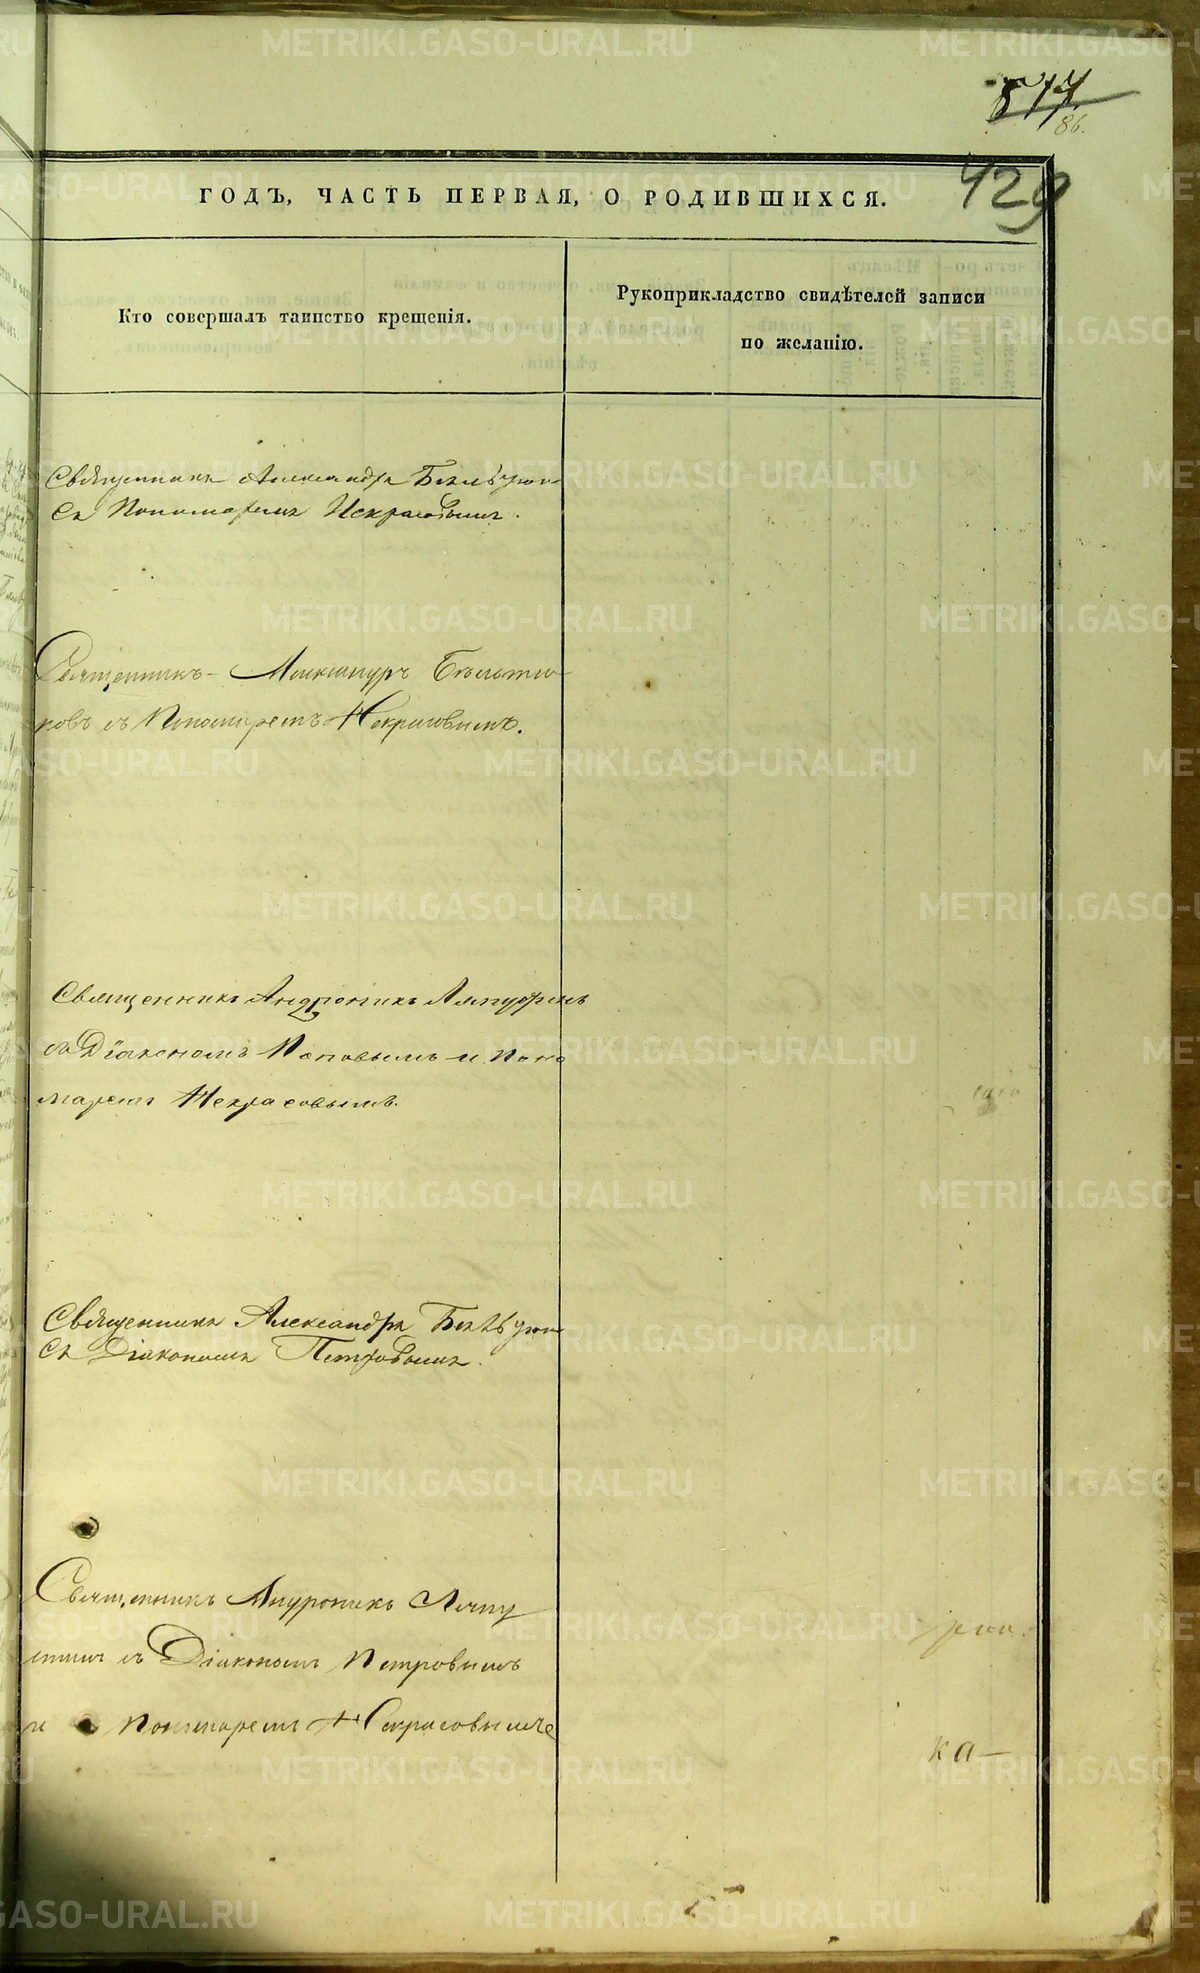 METRIKI.GASO-URAL.RU
517
86.
429
ГОДЪ, ЧАСТЬ ПЕРВАЯ, О РОДИВШИХСЯ.
Кто совершалъ таинство крещенія.
Рукоприкладство свидѣтелей записи
по желанію.
Священникъ Александръ
съ Пономаремъ Некрасовымъ.
Священникъ Александръ Бѣльтю-
ковъ съ Пономаремъ Некрасовымъ.
Священникъ Андроникъ Ляпустинъ
съ Діакономъ Поповымъ и Поно
маремъ Некрасовымъ.
Священникъ Александръ
съ Діакономъ Петровымъ.
Священникъ Андроникъ Ляпу
стинъ съ Діакономъ Петровымъ
и Пономаремъ Некрасовыме
ка-